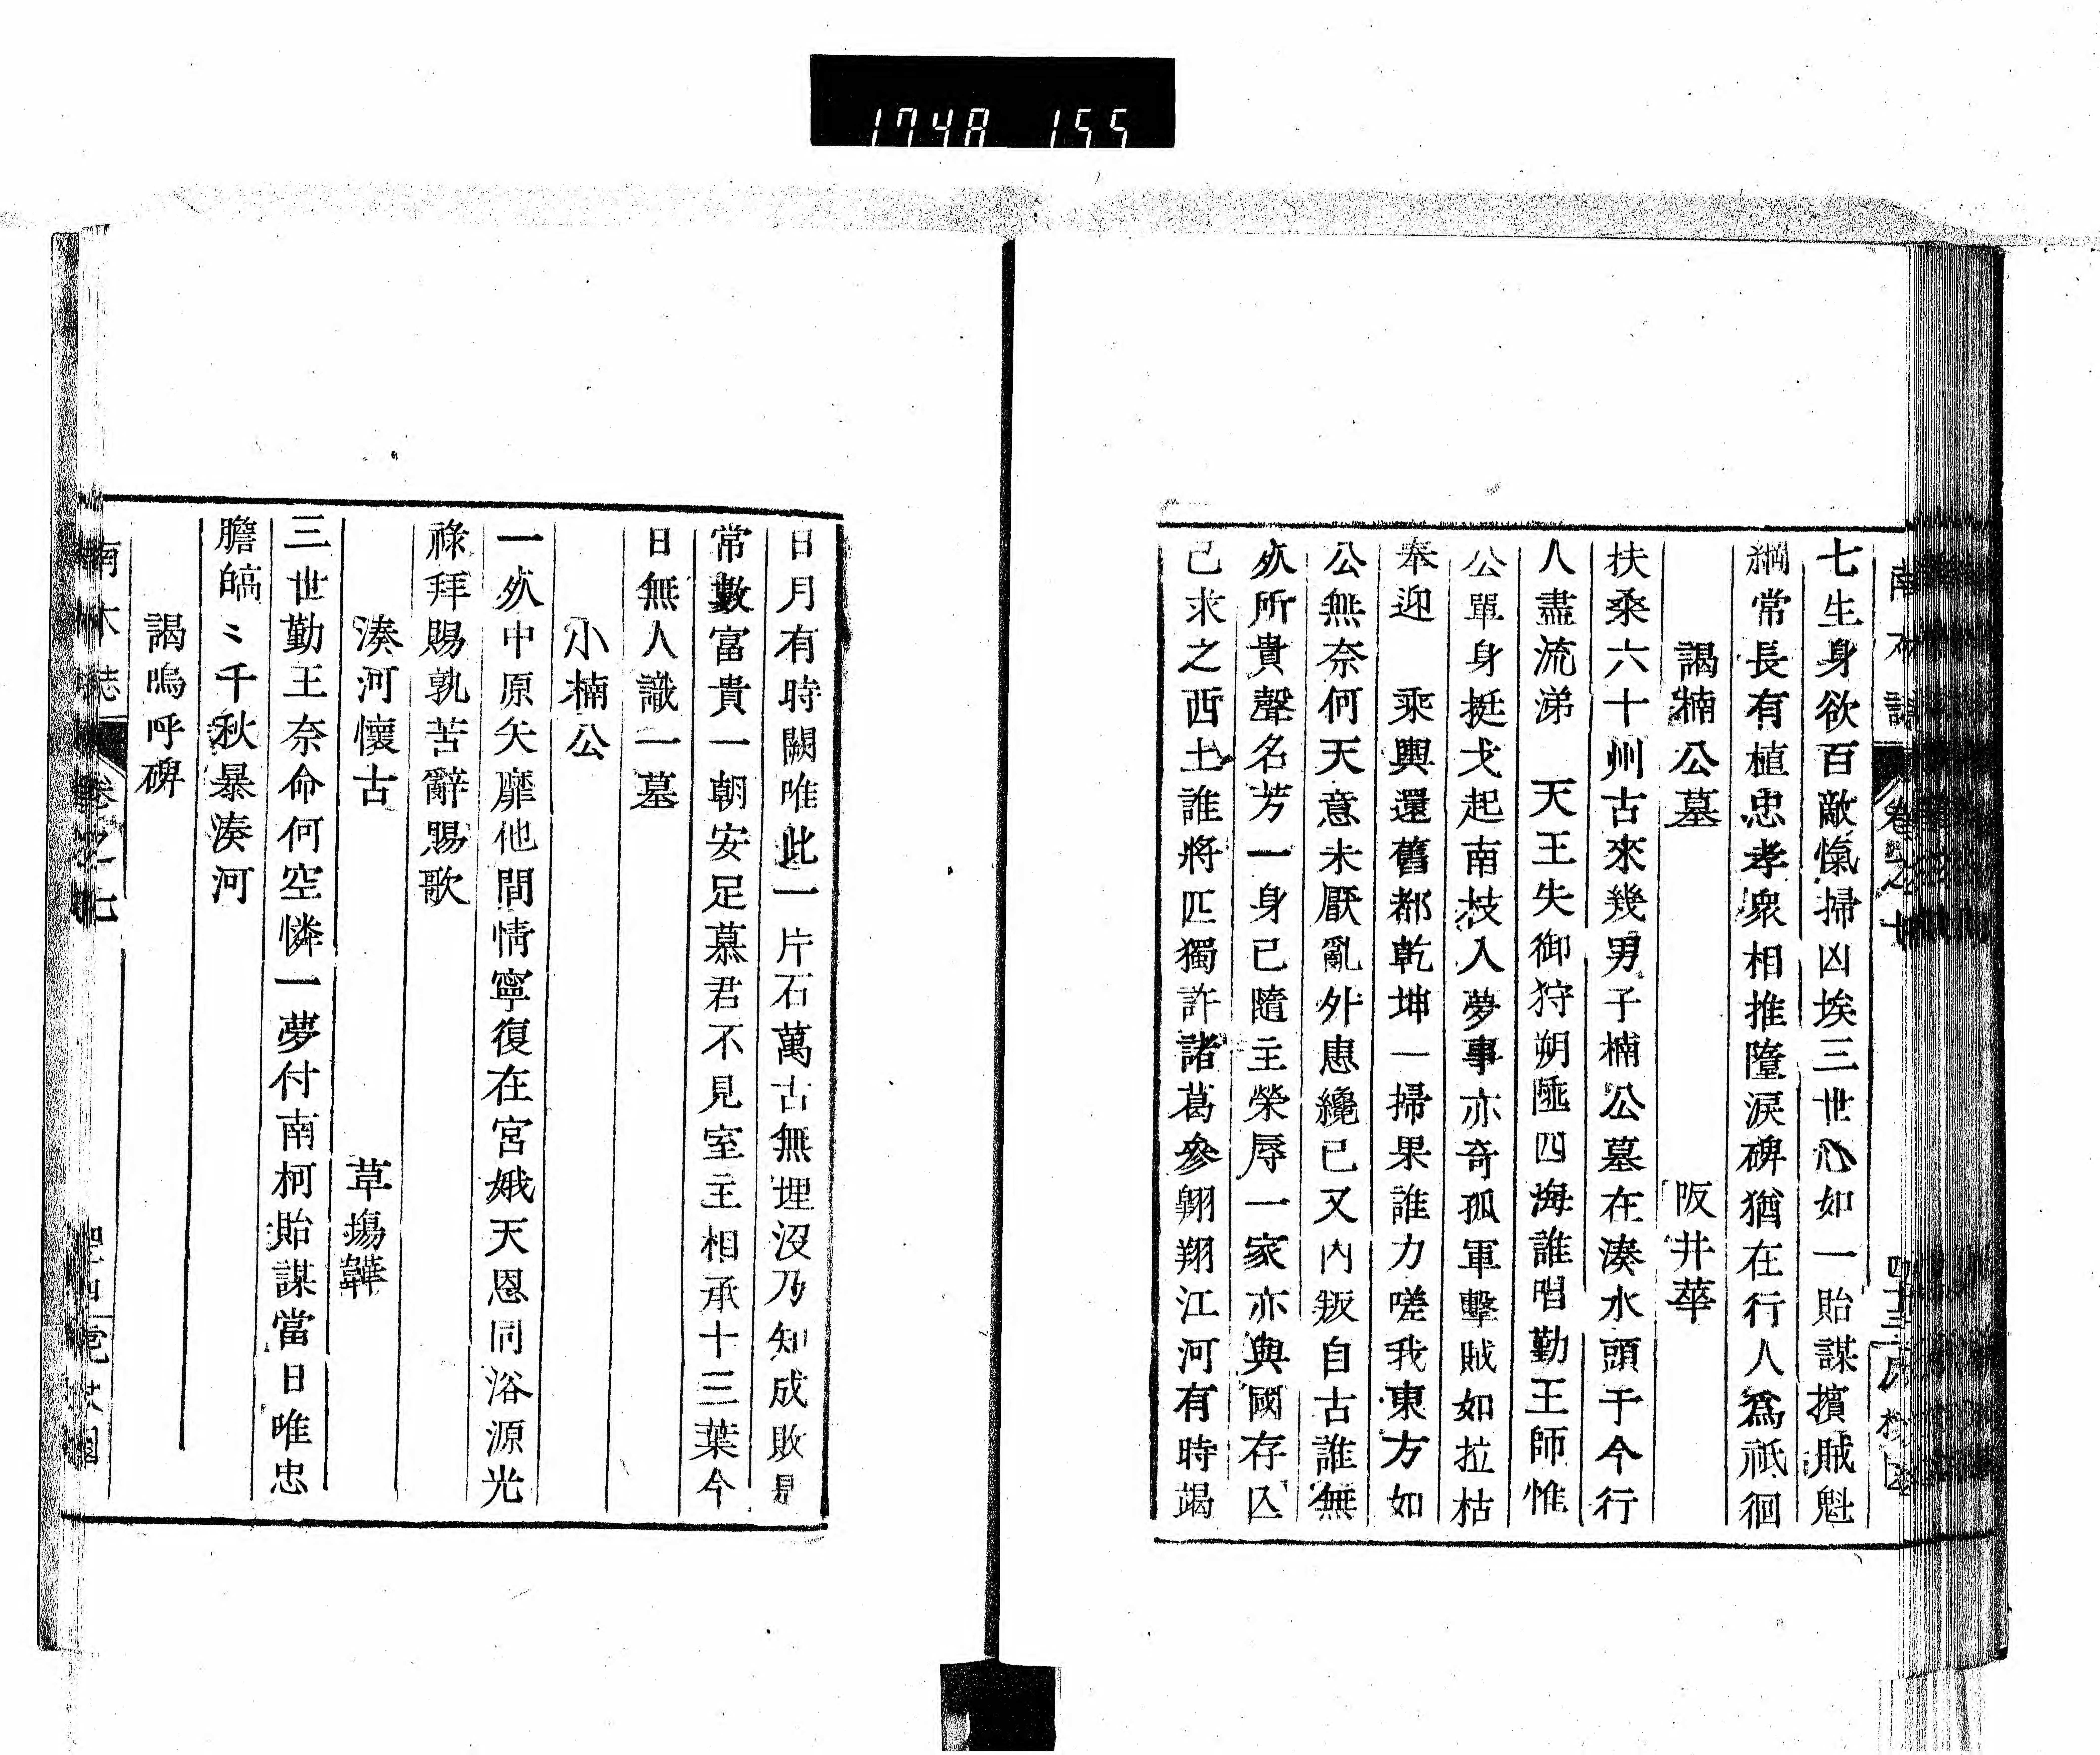 1748 155
七生身欲百敵愾掃凶埃三世心如一貽謀擯賊魁
綱常長有植忠孝衆相推墮淚碑猶在行人爲祗徊
謁楠公墓 阪井華
扶桑六十州古來幾男子楠公墓在湊水頭于今行
人盡流涕 天王失御狩朔陲四海誰唱勤王師惟
公單身挺戈起南枝入夢事亦奇孤軍擊賊如拉枯
奉迎 乘輿還舊都乾坤一掃果誰力嗟我東方如
公無奈何天意未厭亂外患纔已又內叛自古誰無
死所貴聲名芳一身已隨主榮辱一家亦與國存亾
已求之西土誰將匹獨許諸葛參翱翔江河有時竭
日月有時闕唯此一片石萬古無埋沒乃知成敗是
常數富貴一朝安足慕君不見室主相承十三葉今
日無人識一墓
小楠公
一死中原矢靡他間情寧復在宮娥天恩同浴源光
祿拜賜孰苦辭賜歌
湊河懷古 草場韡
三世勤王奈命何空憐一夢付南柯貽謀當日唯忠
膽皜〻千秋暴湊河
謁嗚呼碑
南木誌 卷之七